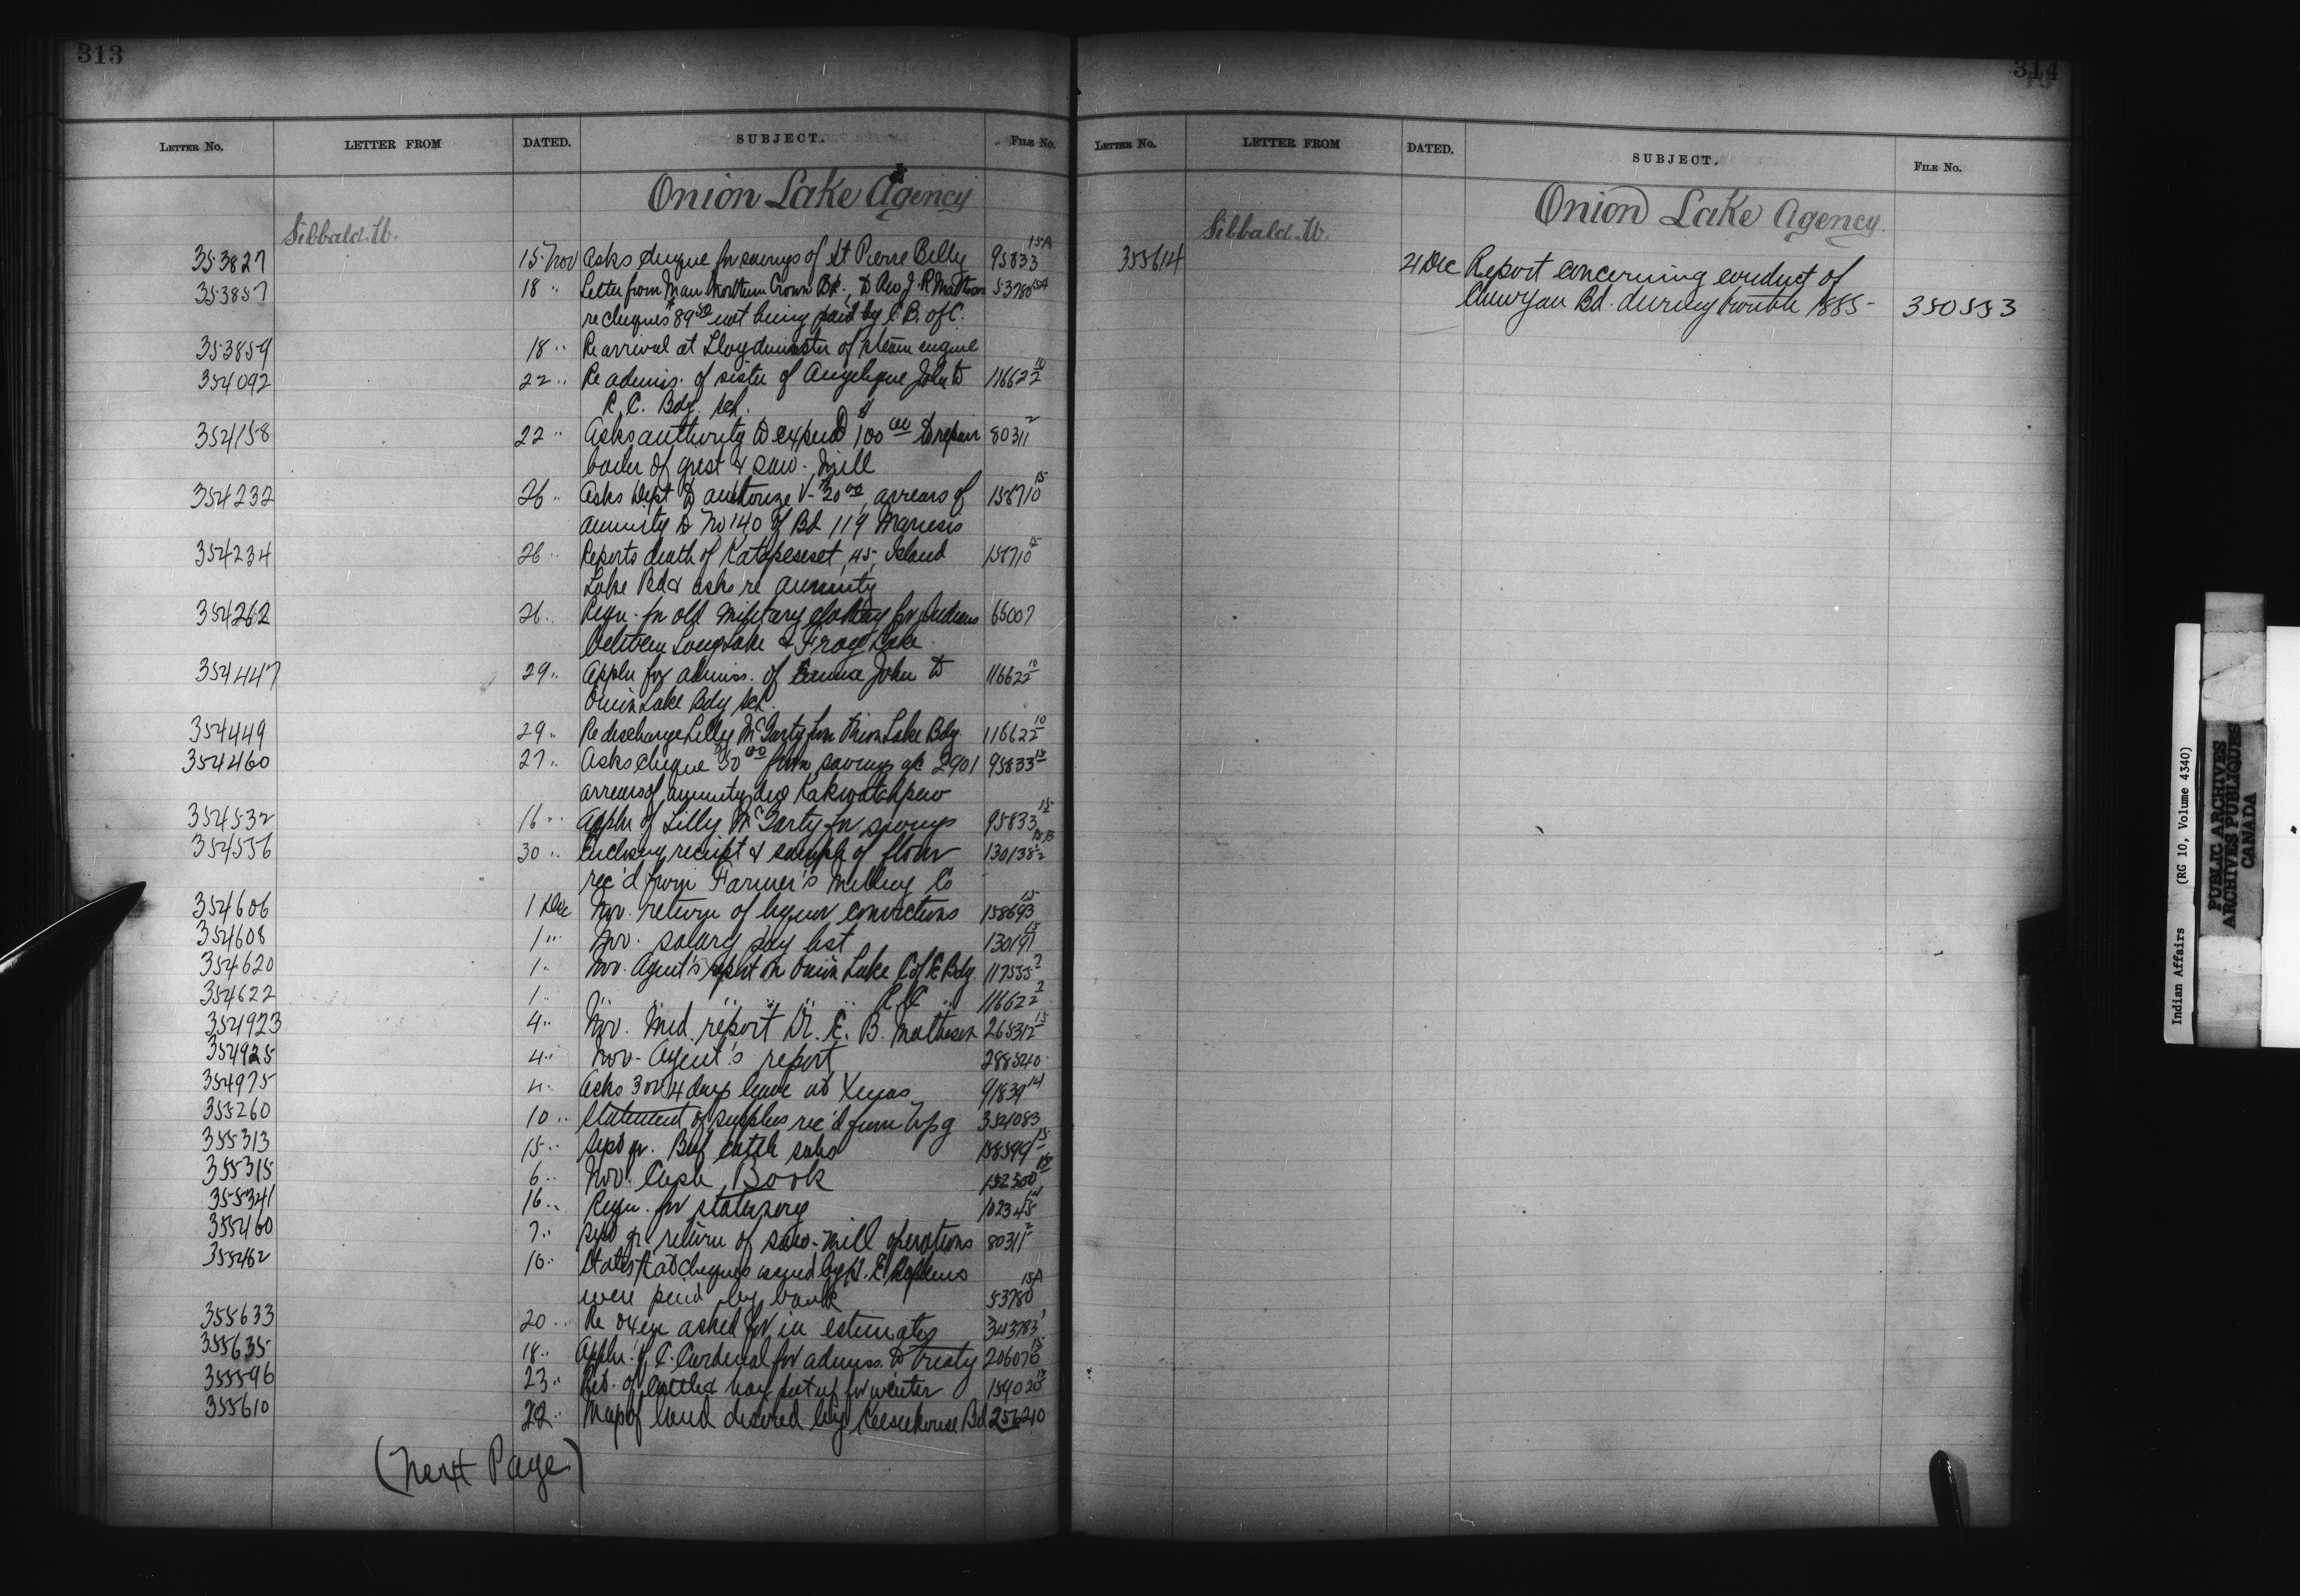 313
LETTER NO. LETTER FROM DATED. SUBJECT. FILE NO.
Onion Lake Agency
Sibbald. W.
353827 15 Nov Asks cheque for savings of St Pierre Billy 95833 15A
353857 18 " Letter from Man Northern Crown Bk., to Rev J. R. Matheson 53780 15A
re cheques $89 50 not being paid by C. B. of C.
353859 18 " Re arrival at Lloydminster of steam engine
354092 22 " Re admiss. of sister of Angelique John to 116622 10/2
R. C. Bdg. sch.
354158 22 " Asks authority to expend $100 00 to repair 80311 2
boiler of grist & saw-mill
354232 26 " Asks Dept to authorize V- $20 00 arrears of 156710 15
annuity to No 140 of Bd 119
354234 26 " Reports death of 45, Island 156710 15
Lake Bd & asks re annuity
354262 26 " Requ. for old military clothing for Indians 65007
between Long Lake & Frog Lake
354447 29 " Appln for admiss. of Emma John to 116622 10/2
Onion Lake Bdg sch.
354449 29 " Re discharge Lilly McCarty from Onion Lake Bdg 116622 10/2
354460 27 " Asks cheque 30 00 from savings a/c 2901 95833 15
arrears of annuity due
354532 16 " Appln of Lilly McCarty for savings 95833 15
354556 30 " Enclosing receipt & sample of flour 130138 15B/2
rec'd from Farmer's Milling Co
354606 1 Dec Nov. return of liquor convictions 158693 15
354608 1 " Nov. salary pay list 130197 15
354620 1 " Nov. Agent's report on Onion Lake C of E Bdg. 117535 7/2
354622 1 " " " " " " R. C. " 116622 2/2
354923 4 " Nov. Med. report Dr. E. B. Matheson 265312 15
354925 4 " Nov- Agent's report 288540
354975 4 " Asks 3 or 4 days leave at Xmas 91839 14
355260 10 " Statement of supplies rec'd from Wpg 354083
355313 15 " Sept qr. Beef cattle subs 158599 15
355315 6 " Nov. Cash Book 152300 15
355341 16 " Requ. for stationery 102345 14
355460 7 " Sept qr return of saw-mill operations 80311 2
355462 16 " States that cheques issued by H. E.
were paid by bank 53780 15A
355633 20 " Re oxen asked for in estimates 343783 1
355635 18 " Appln. of C. Cardinal for admiss. to treaty 206070 15
355596 23 " Ret. of cattle & hay put up for winter 154020 15
355610 22 " Map of land desired by Keeseekouse Bd 256210
(Next Page)
314
LETTER NO. LETTER FROM DATED. SUBJECT. FILE NO.
Onion Lake Agency.
Sibbald. W.
355614 21 Dec Report concerning conduct of
Bd. during trouble 1885- 350553
Indian Affairs (RG 10, Volume 4340)
PUBLIC ARCHIVES
ARCHIVES PUBLIQUES
CANADA